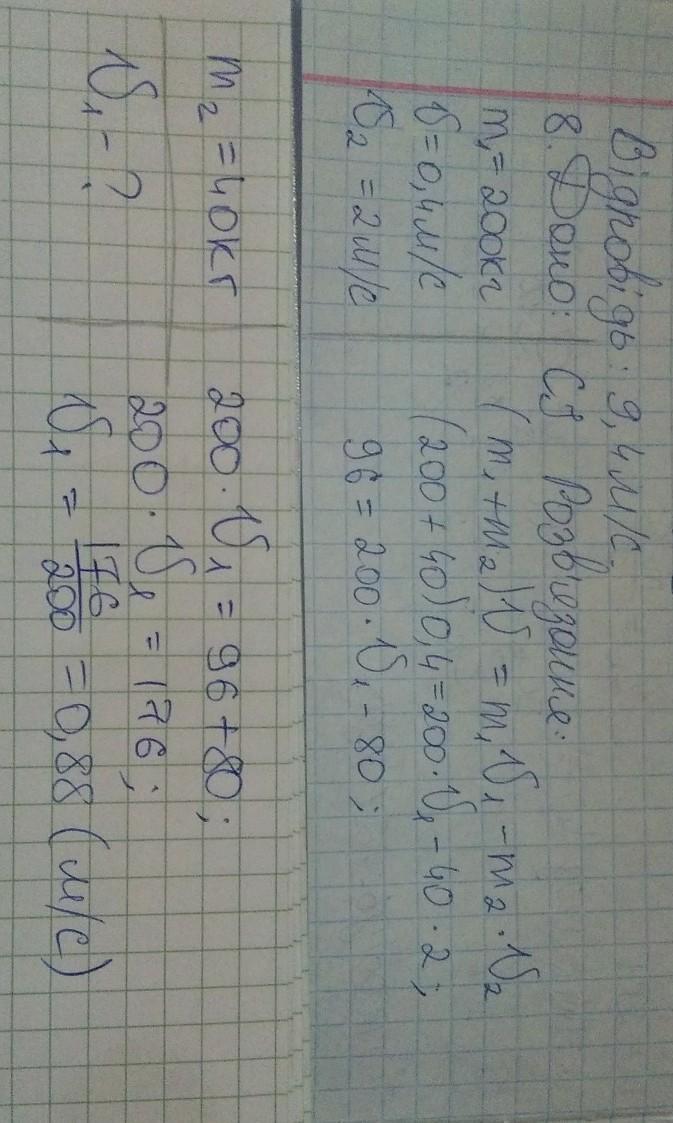 Відповідь: 9,4м/с.
8. Дано:
СІ Розв'язання:
m₁ = 200кг
(m₁+m₂)υ = m₁υ₁ - m₂·υ₂
υ = 0,4м/с
(200 + 40)0,4 = 200·υ₁ - 40·2;
υ₂ = 2м/с
96 = 200·υ₁ - 80;
m₂ = 40кг
200·υ₁ = 96 + 80;
υ₁ - ?
200·υ₁ = 176;
υ₁ = 176/200 = 0,88 (м/с)